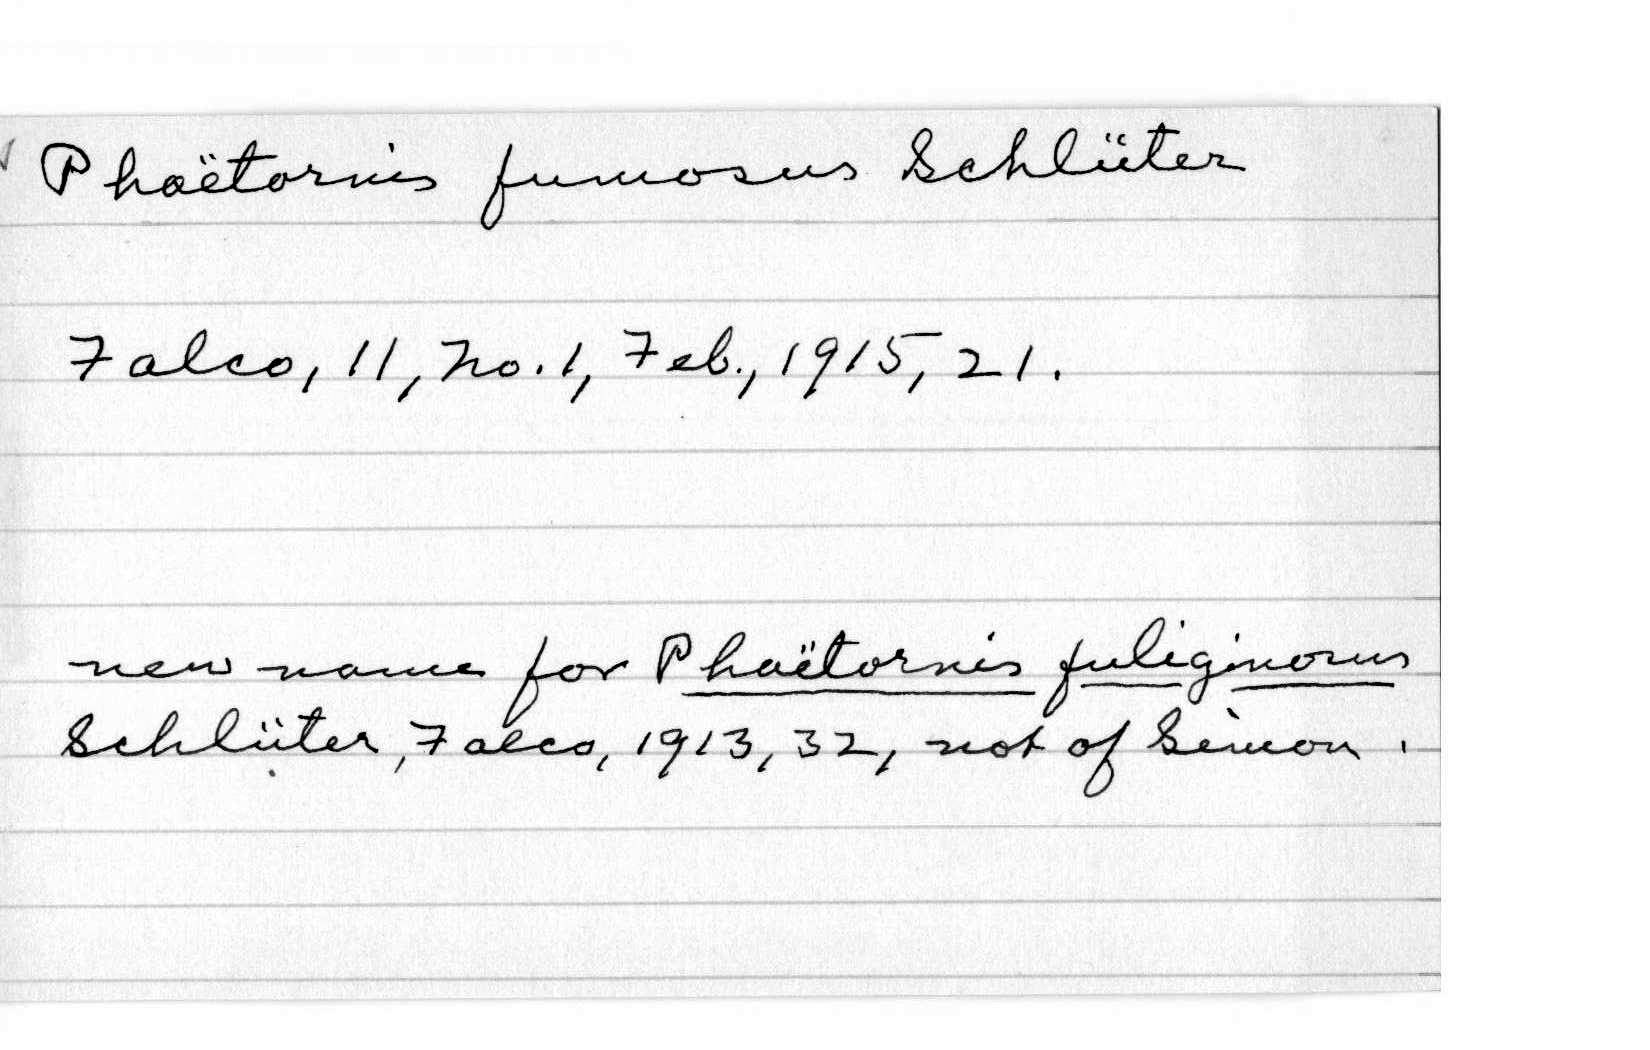 Phaëtornis fumosus Schlüter
Falco, 11, no. 1, Feb., 1915, 21.
new name for Phaëtornis fuliginosus
Schlüter, Falco, 1913, 32, not of Simon.